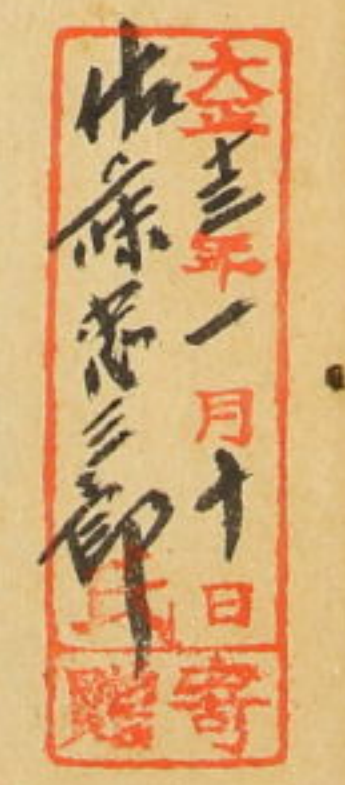 大正十三年一月十日
佐藤忠三郎氏
寄贈